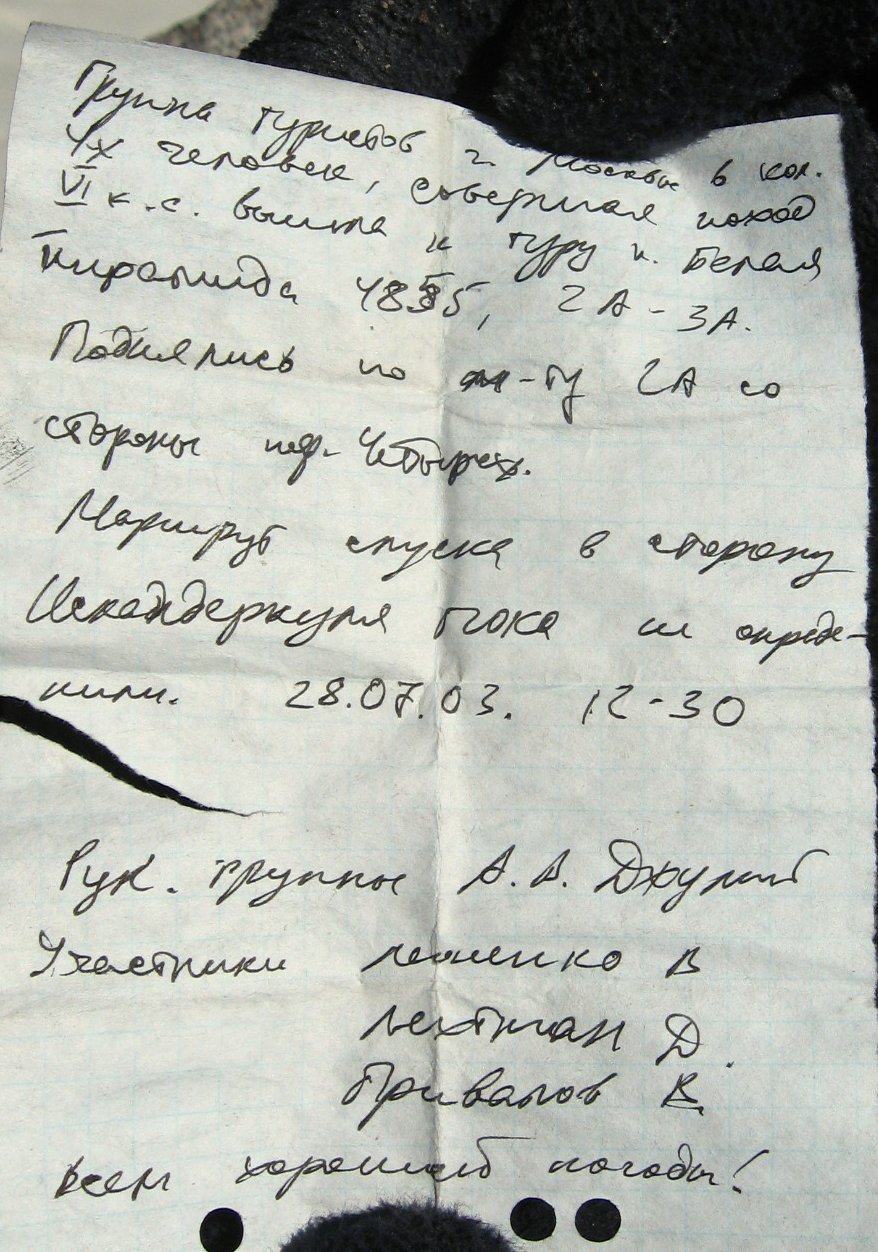 Группа туристов г. Москвы в кол.
4х человек, совершая поход
VI к.с. вышла к туру п. Белая
пирамида 4855, 2А-3А.
Поднялись по м-ту 2А со
стороны пер. Четырёх.
Маршрут спуска в сторону
Искандеркуля пока не опреде-
лили. 28.07.03. 12-30
Рук. группы А.А. Джулий
Участники Лещенко В
Лехтман Д.
Привалов В.
Всем хорошей погоды!